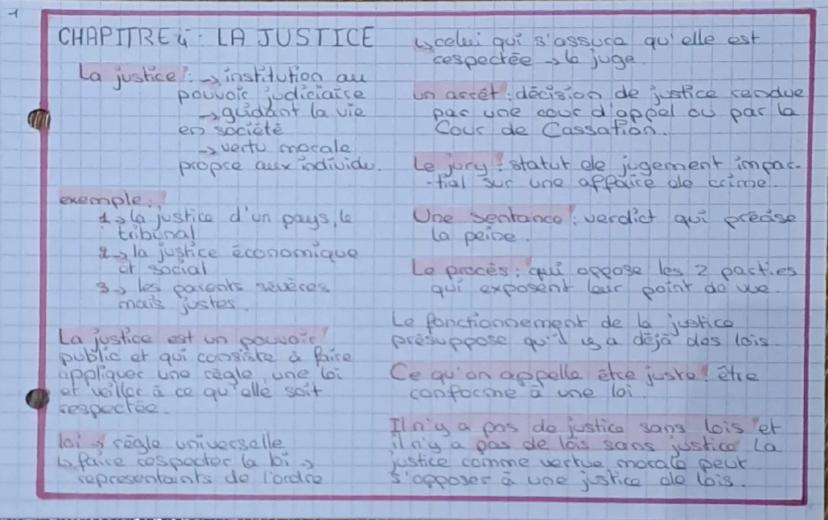 1
CHAPITRE 4 : LA JUSTICE
La justice : → institution au
pouvoir judiciaire
→ guidant la vie
en société
→ vertu morale
propre aux individu.
exemple :
1 → la justice d'un pays, le
tribunal
2 → la justice économique
et social
3 → les parents sévères
mais justes.
La justice est un pouvoir
public et qui consiste à faire
appliquer une règle, une loi
et veiller à ce qu'elle soit
respectée.
loi → règle universelle
↳ faire respecter la loi →
representants de l'ordre
↳ celui qui s'assura qu'elle est
respectée → le juge.
un arrêt : décision de justice rendue
par une cour d'appel ou par la
Cour de Cassation.
Le jury : statut de jugement impar-
-tial sur une affaire de crime.
Une sentance : verdict qui précise
la peine.
Le procès : qui oppose les 2 parties
qui exposent leur point de vue.
Le fonctionnement de la justice
présuppose qu'il y a déjà des lois.
Ce qu'on appelle être juste : être
conforme à une loi.
Il n'y a pas de justice sans lois et
il n'y a pas de lois sans justice La
justice comme vertue morale peut
s'opposer à une justice de lois.